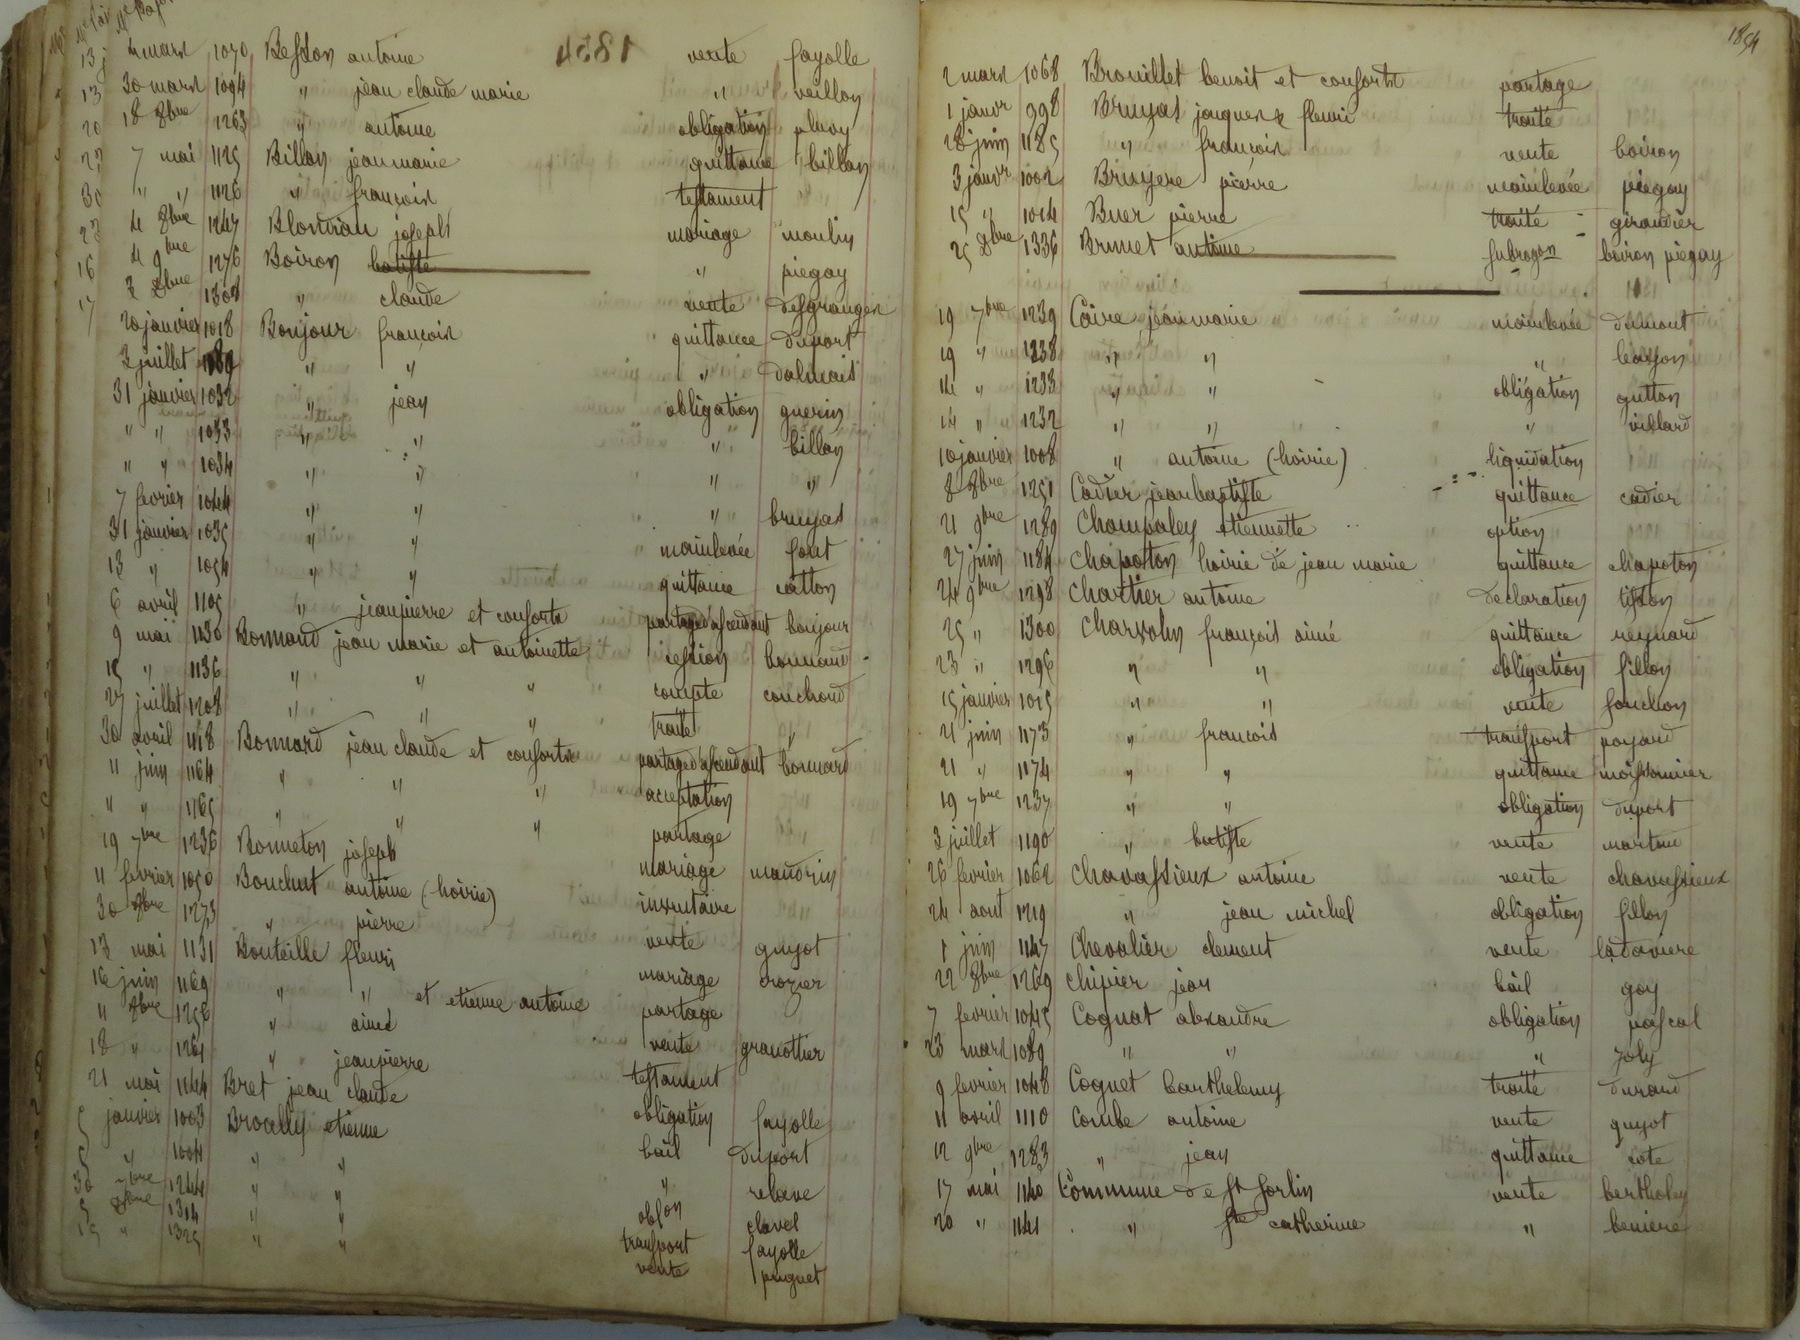 4 mars 1070 Besson antoine vente fayolle
30 mars 1094 " jean claude marie " veillon
18 8bre 1263 " antoine obligation pluvy
7 mai 1125 Billon jean marie quittance billon
" " 1126 " françois testament
4 8bre 1247 Blondran joseph mariage moulin
4 9bre 1276 Boiron batiste " piegay
1308 " claude vente desgranges
20 janvier 1018 Boujour françois quittance duport
3 juillet 1189 " " " dalmais
31 janvier 1032 " jean obligation guerin
" " 1033 " " " billon
" " 1034 " " " "
7 fevrier 1044 " " " bruyas
31 janvier 1035 " " mainlevée font
13 " 1054 " " quittance catton
6 avril 1105 " jean pierre et consorts partage d'ascendant boujour
9 mai 1130 Bonnand jean marie et antoinette cession bonnand
15 " 1136 " " " compte couchoud
27 juillet 1208 " " " traité "
30 avril 1118 Bonnard jean claude et consorts partage d'ascendant bonnard
11 juin 1164 " " " acceptation
" " 1165 " " " partage
19 7bre 1236 Bonneton joseph mariage maudrin
11 fevrier 1050 Bouchut antoine (hoirie) inventaire
30 8bre 1273 " pierre vente guyot
13 mai 1131 Bouteille fleuri mariage crozier
16 juin 1169 " " et etienne antoine partage
11 8bre 1256 " aimé vente granottier
18 " 1261 " jean pierre testament
21 mai 1144 Bret jean claude obligation fayolle
5 janvier 1003 Brocelly etienne bail duport
5 " 1004 " " " relave
30 7bre 1244 " " oblon clavel
5 1314 " " transport fayolle
15 " 1325 " " vente puguet
1854
2 mars 1068 Brouillet benoit et consorts partage
1 janvr 998 Bruyas jacques & fleurie traité
28 juin 1185 " françois vente boiron
3 janvr 1002 Bruyere pierre mainlevée piegay
15 " 1014 Buer pierre traité giraudier
1336 Brunet antoine subrogon boiron piegay
19 7bre 1239 Caire jean marie mainlevée dumont
19 " 1238 " " " basson
14 " 1233 " " obligation gutton
14 " 1232 " " " villard
10 janvier 1008 " antoine (hoirie) liquidation
8 8bre 1251 Cadier jean baptiste quittance cadier
21 9bre 1289 Champaley etiennette option
27 juin 1184 Chapoton hoirie de jean marie quittance chapoton
24 9bre 1298 Chartier antoine declaration tisson
25 " 1300 Charvolin françois aimé quittance reynard
23 " 1296 " " obligation fillon
15 janvier 1015 " " vente fonchon
21 juin 1173 " françois transport poyard
21 " 1174 " " quittance moissonnier
19 7bre 1237 " " obligation duport
3 juillet 1190 " batiste vente martin
26 fevrier 1062 Chavassieux antoine vente chavassieux
24 aout 1219 " jean michel obligation fillon
1 juin 1147 Chevalier clement vente ladaviere
22 8bre 1269 Chipier jean bail goy
7 fevrier 1045 Cognat alexandre obligation pascal
23 mars 1089 " " " joly
9 fevrier 1048 Coquet barthelemy traité durand
11 avril 1110 Combe antoine vente guyot
12 9bre 1283 " jean quittance cote
17 mai 1140 Commune de St Sorlin vente bertholey
20 " 1141 " Ste catherine " beniere